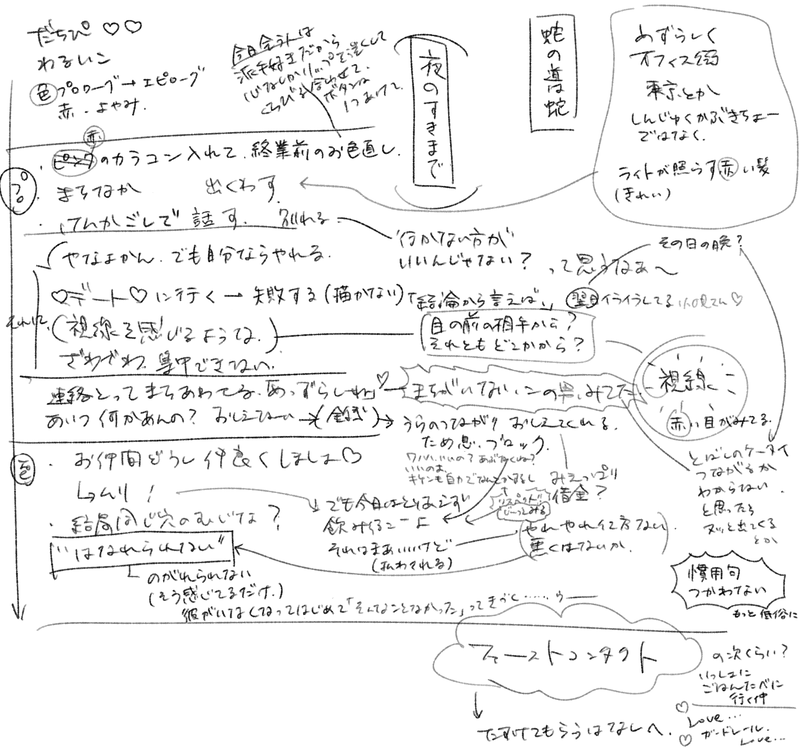 だちぴ ♡♡
わるいこ
色 プロローグ→エピローグ
赤・よやみ.
今日会う人は
派手好きだから
ボタンは
1つあけて.
夜のすきまで
蛇の道は蛇
めずらしく
オフィス街
東京とか
しんじゅくかぶきちょー
ではなく.
ライトが照らす赤い髪
(きれい)
プ。
赤
・ピンクのカラコン入れて、終業前のお色直し.
まちなか 出くわす
・けんかごしで話す. 別れる.
行かない方が
いいんじゃない?
って思うなあ〜
その日の晩?
やなよかん. でも自分ならやれる.
♡デート♡に行く → 失敗する(描かない)「結論から言えば」
翌日イライラしてる
それで
(視線を感じるような.
ざわざわ. 集中できない.
目の前の相手から?
それともどこかから?
視線
赤い目がみてる.
連絡とってまちあわせる. めっずらしーね」♡
まちがいない、この男、みてた
あいつ何かあんの? おしえない
うらのつながり おしえてくれる.
ため息. ブロック.
とばしのケータイ
つながるか
わからない
と思ったら
ヌッと出てくる
とか
・お仲間どうし仲良くしましょ♡
みえっぱり
借金?
じーっとみる
でも今日はとりあえず
飲み行こーよ
それはまあいいけど
(払わされる)
やれやれ仕方ない
悪くはないか.
・結局同じ穴のむじな?
"はなれられない"
のがれられない
(そう感じてるだけ.)
彼がいなくなってはじめて「そんなことなかった」ってきづく……ゥ—
慣用句
つかわない
もっと低俗に
ファーストコンタクト
の次くらい?
いっしょに
ごはんたべに
行く仲
♡ Love…
ガードレール.
♡ Love…
たすけてもらうはなしへ.